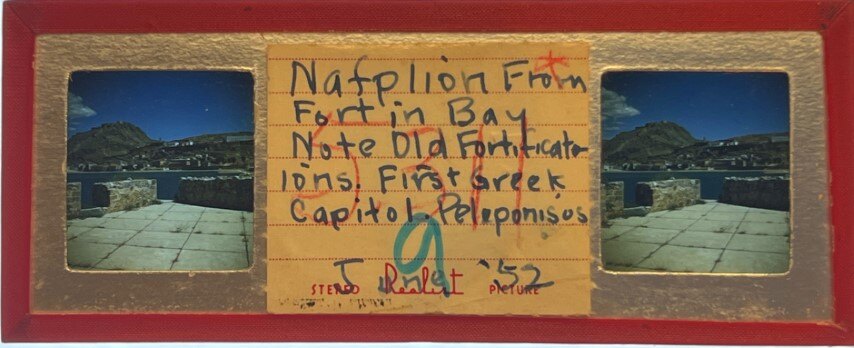 Nafplion From *
Fort in Bay
Note Old Fortificat-
ions. First Greek
Capitol. Peleponisos
5311
9
June '52
STEREO Realist PICTURE